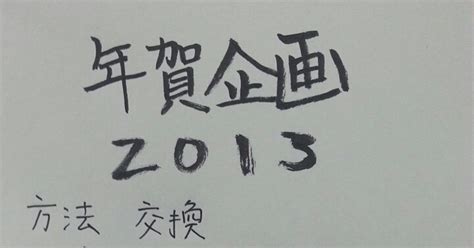 年賀企画
2013
方法 交換